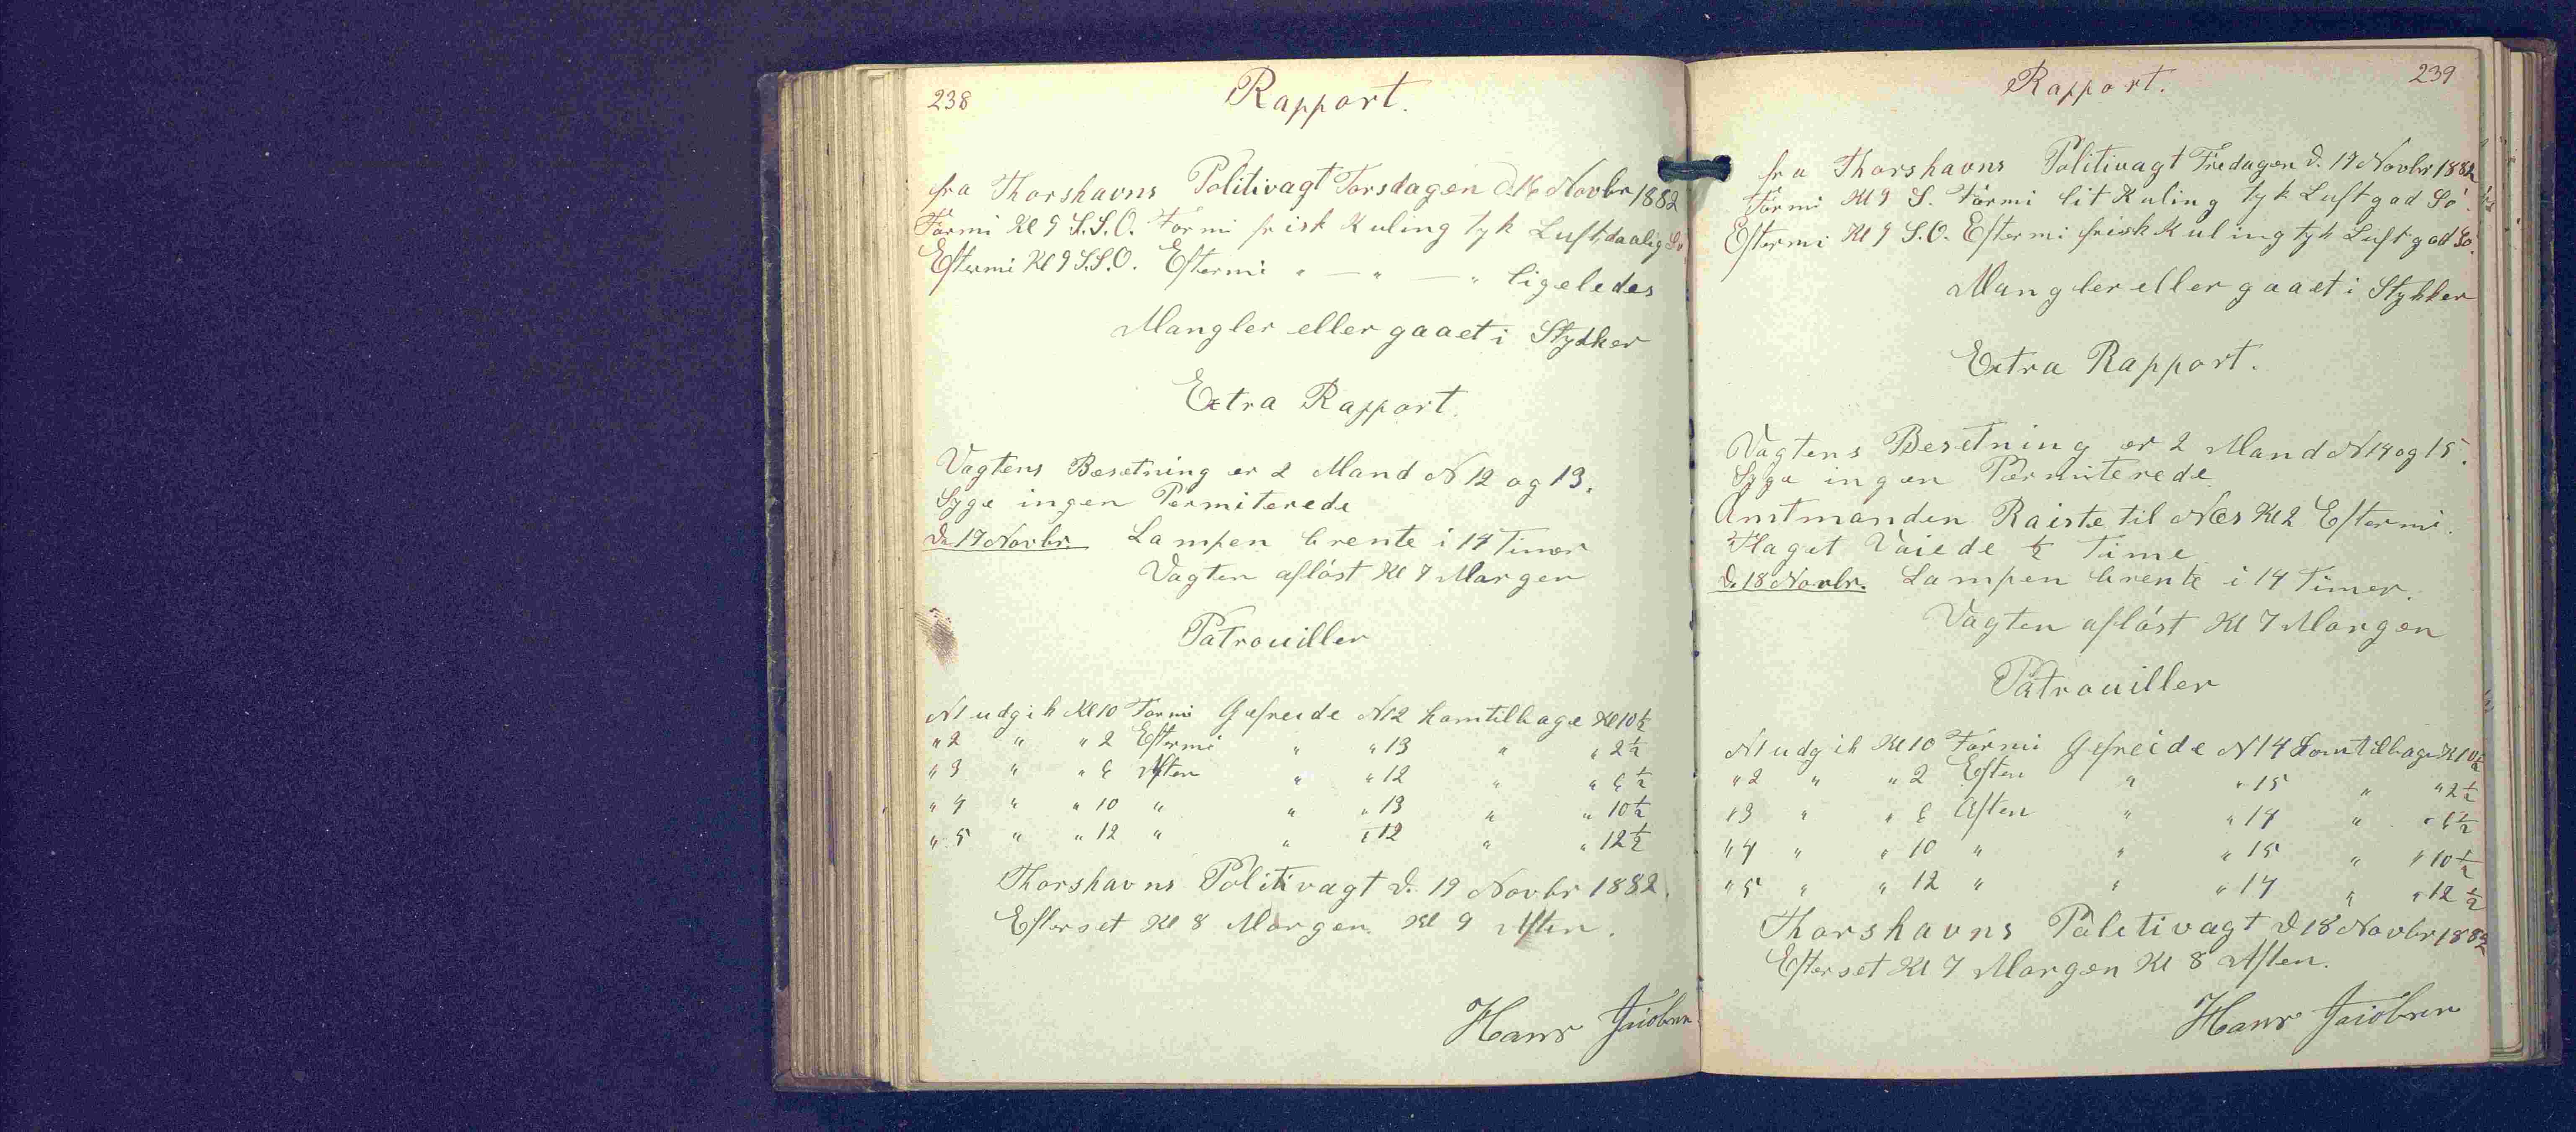 238
Rapport.
fra Thorshavns Politivagt Torsdagen d. 16 Novbr 1882
Formi Kl 9 S.S.O. Formi frisk Kuling tyk Luft daalig Sö
Eftermi Kl 9 S.S.O. Eftermi " — " — " ligeledes
Mangler eller gaaet i Stykker
Extra Rapport.
Vagtens Besætning er 2 Mand N 12 og 13.
Syge ingen Permiterede
d. 17 Novbr. Lampen brente i 14 Timer
Vagten aflöst Kl 7 Morgen
Patrouiller
N1 udgik Kl 10 Formi Gefreide N12 komtilbage Kl 10½
" 2 " " 2 Eftermi " " 13 " " 2½
" 3 " " 6 Aften " " 12 " " 6½
" 4 " " 10 " " " 13 " " 10½
" 5 " " 12 " " " 12 " " 12½
Thorshavns Politivagt d. 17 Novbr 1882.
Efterset Kl 8 Morgen Kl 9 Aften.
Hans Jacobsen
239
Rapport.
fra Thorshavns Politivagt Fredagen d. 17 Novbr 1882
Formi Kl 9 S. Formi lit Kuling tyk Luft god Sö.
Eftermi Kl 9 S.O. Eftermi frisk Kuling tyk Luft god Sö.
Mangler eller gaaet i Stykker
Extra Rapport.
Vagtens Besetning er 2 Mand N 14 og 15.
Syge ingen Permiterede
Amtmanden Raiste til Næs Kl 2 Eftermi.
Flaget Vaiede ½ Time
d. 18 Novbr. Lampen brente i 14 Timer.
Vagten aflöst Kl 7 Morgen
Patrouiller
N1 udgik Kl 10 Formi Gefreide N 14 komtilbage Kl 10½
" 2 " " 2 Eften " " 15 " " 2½
" 3 " " 6 Aften " " 14 " " 6½
" 4 " " 10 " " " 15 " " 10½
" 5 " " 12 " " " 14 " " 12½
Thorshavns Politivagt d 18 Novbr 1882
Efterset Kl 7 Morgen Kl 8 Aften.
Hans Jacobsen